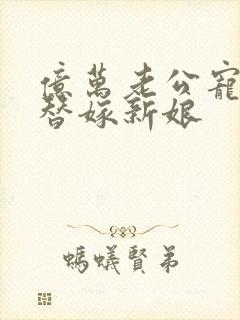 億萬老公寵
替嫁新娘
螞蟻賢弟